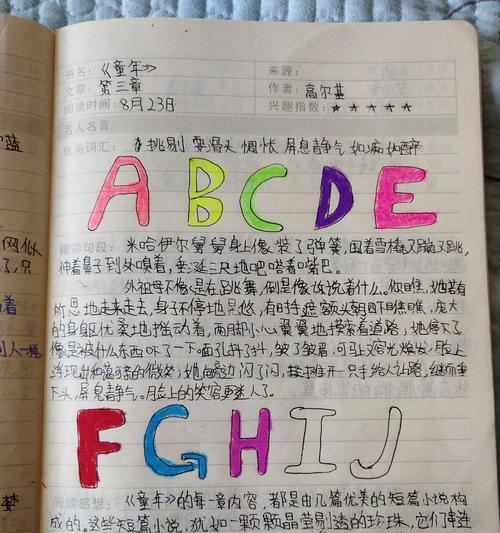 蓝
网似
了，只
着
别人一样
梦
书名：《童年》
来源：
文章：第三章
作者：高尔基
阅读时间：8月23日
兴趣指数：★★★★★
名人名言
优美词汇：挑剔 耍滑头 惆怅 屏息静气 如痴如醉
A B C D E
精彩句段：米哈伊尔舅舅身上像装了弹簧，围着雪橇又蹦又跳，
伸着鼻子到外嗅着，垂涎三尺地吧嗒着嘴巴。
外祖母不像是在跳舞，倒是像诉说着什么。你瞧，她若有
所思地走来走去，身子不停地晃悠，有时遮额头朝四下瞧瞧，庞大
的身躯优柔地推动着，两脚小心翼翼地探索着道路；她停下了
像是被什么东西吓了一下面孔抖了抖，皱了皱眉，可马上又容光焕发，脸上
连现出和蔼的微笑；她向旁边闪了闪，接来挥开一只手给人让路，继而垂
下头，屏息静气。脸上的笑容更迷人了。
F G H I J
阅读感想：《童年》的每一章内容，都是由几篇优美的短篇小说构
成的。这些短篇小说，犹如一颗颗晶莹剔透的珍珠，它们串连